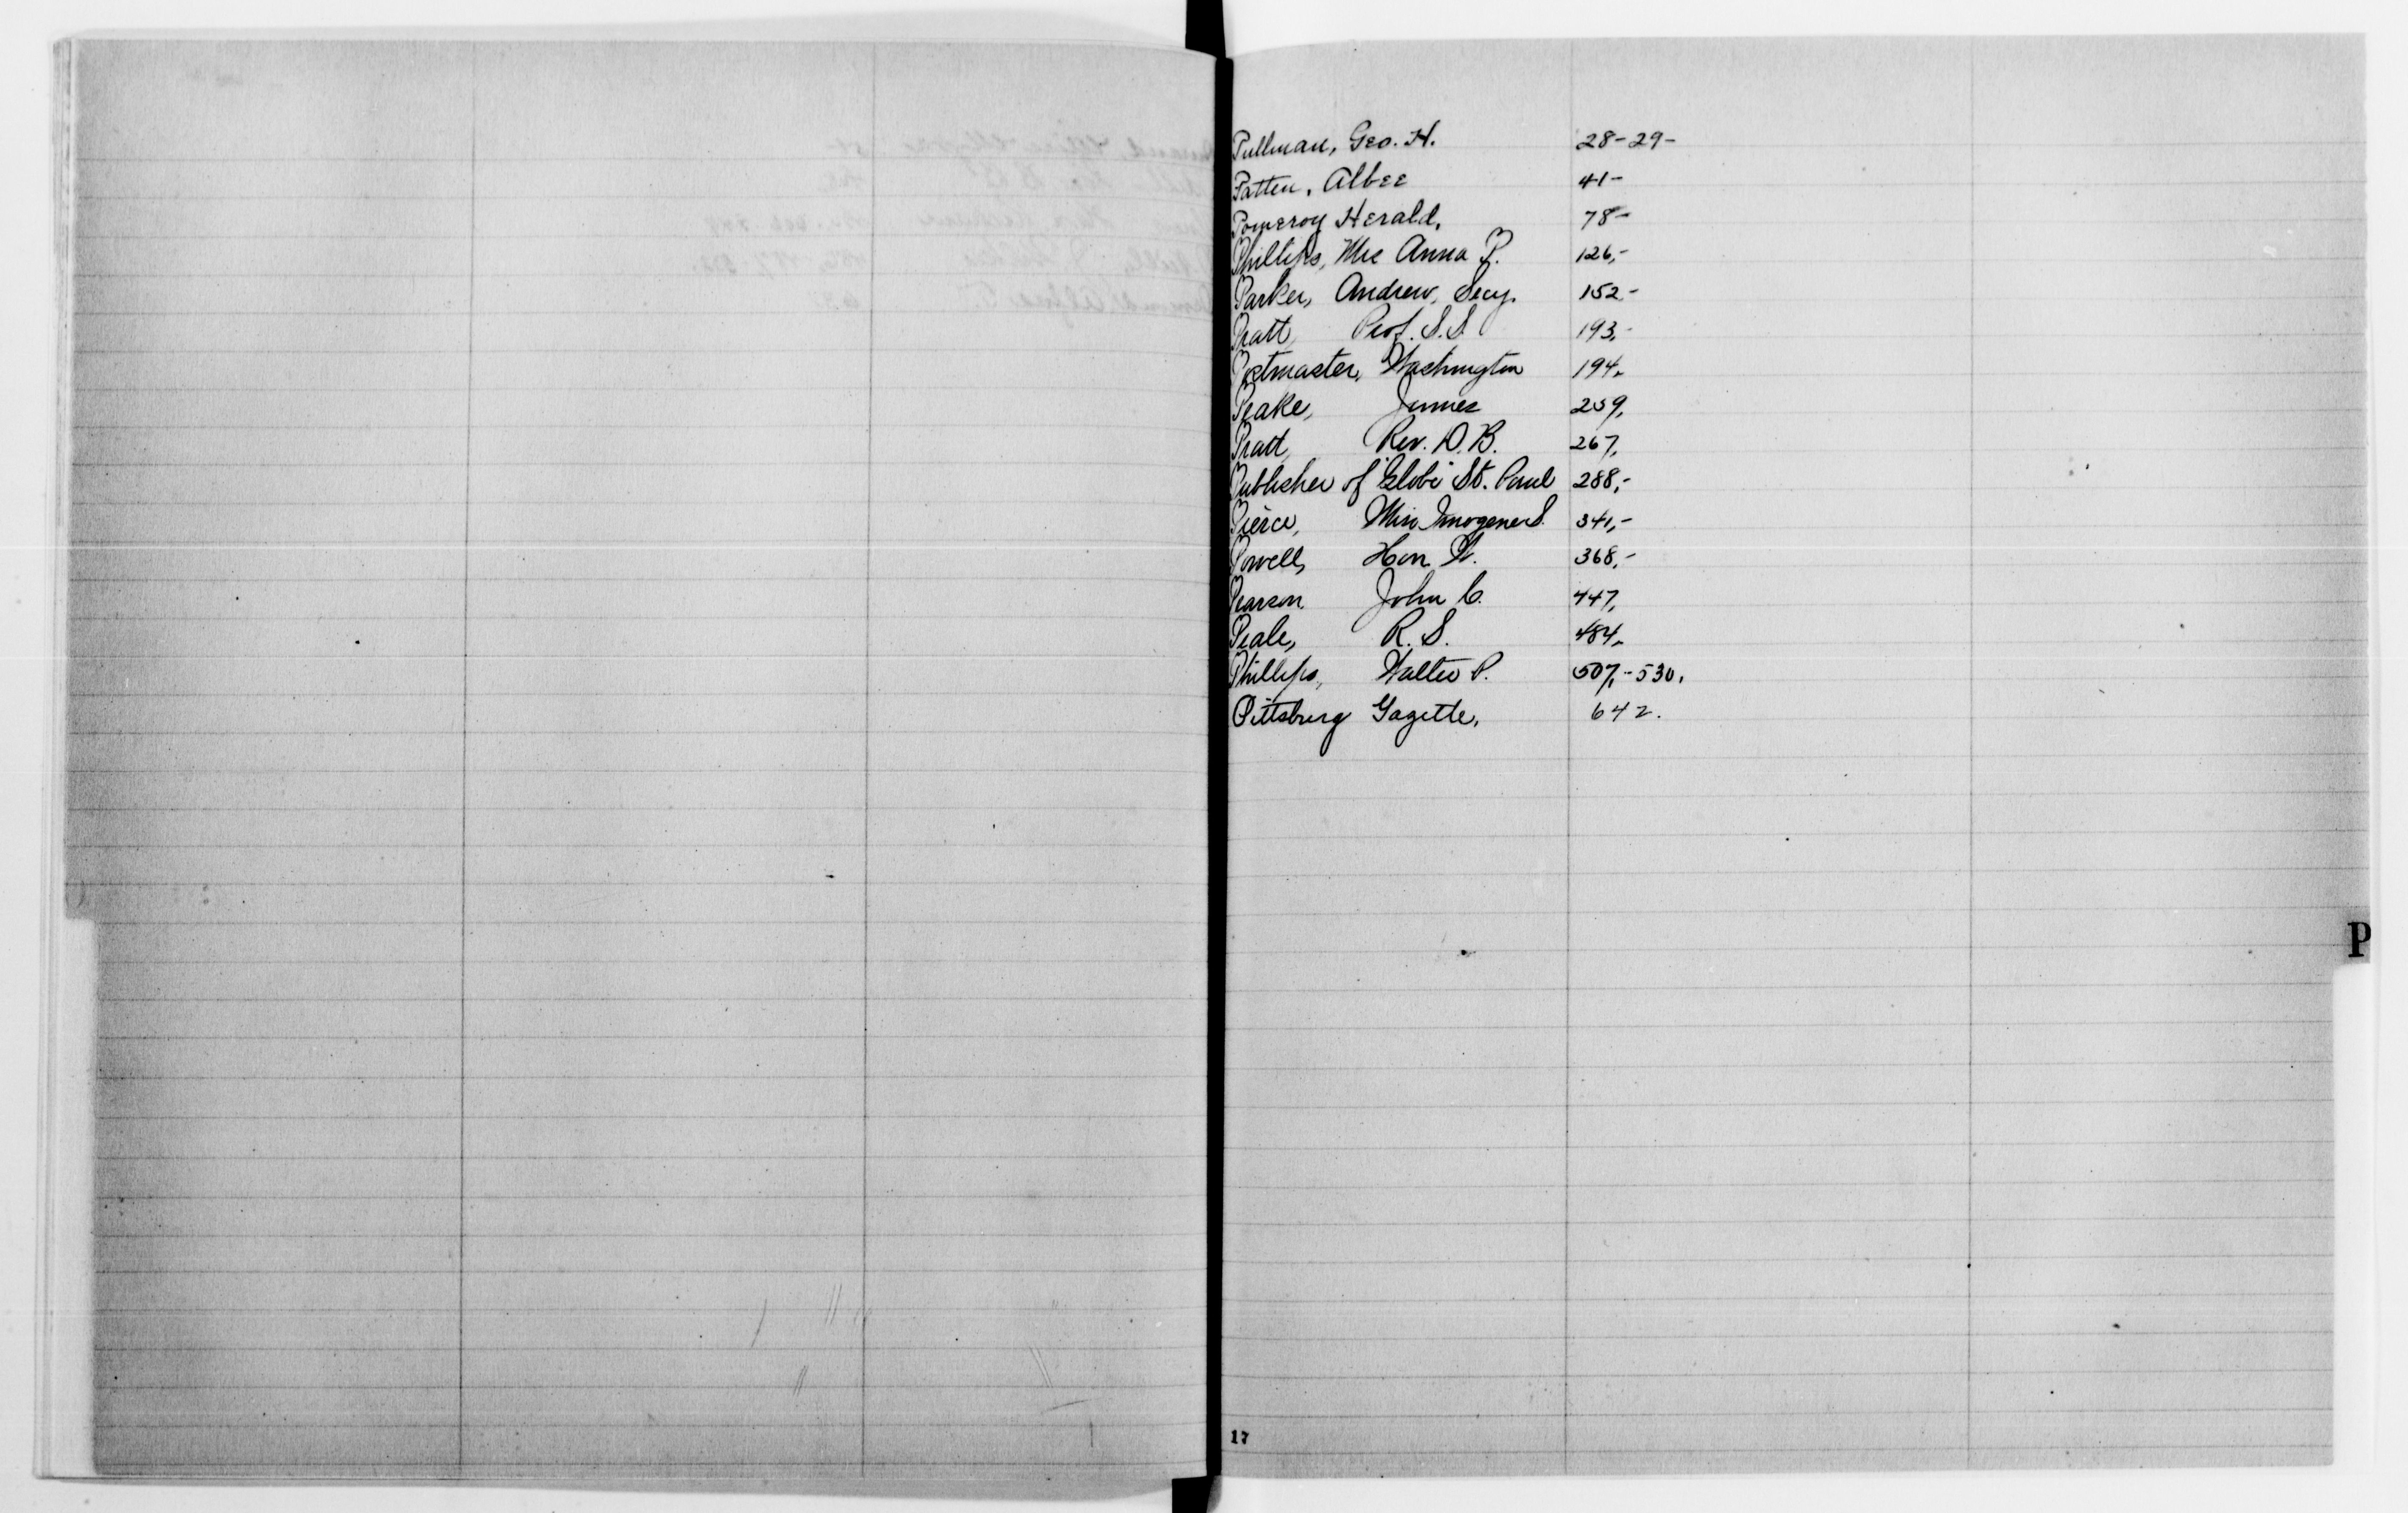 Pullman, Geo. H. 28-29-
Patten, Albee 41-
Pomeroy Herald, 78-
Phillips, Mrs Anna P. 126,-
Parker, Andrew, Secy. 152,-
Pratt, Prof. S.S. 193,-
Postmaster, Washington 194,
Peake, James 259,
Pratt, Rev. D.B. 267,
Publisher of "Globe" St. Paul 288,-
Pierce, Miss Imogene S. 341,-
Powell, Hon. W. 368,-
Pearson John C. 447,
Peale, R. S. 484,
Phillips, Walter P. 507,-530,
Pittsburg Gazette, 642.
P
17